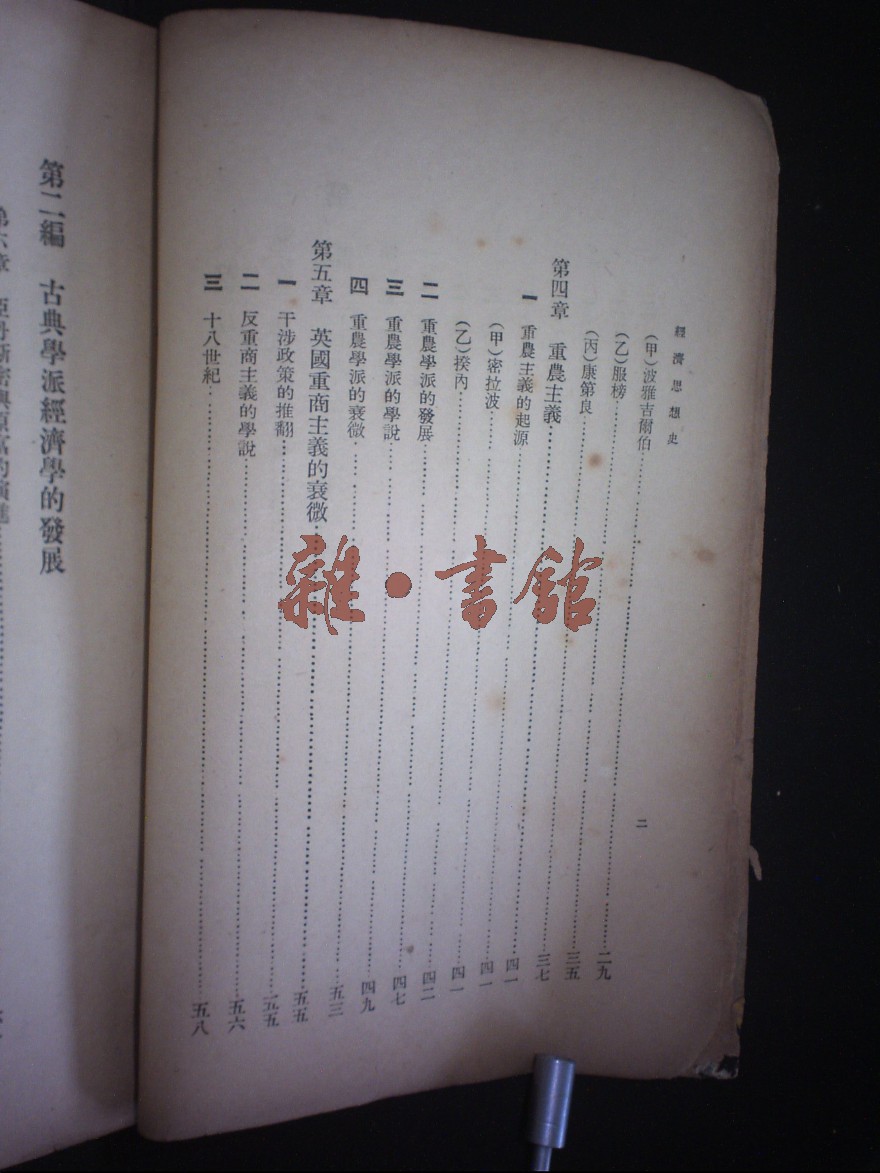 經濟思想史 二
(甲)波雅吉爾伯……二九
(乙)服榜……三五
(丙)康第良……三七
第四章 重農主義……四一
一 重農主義的起源……四一
(甲)密拉波……四一
(乙)揆內……四二
二 重農學派的發展……四七
三 重農學派的學說……四九
四 重農學派的衰微……五三
第五章 英國重商主義的衰微……五五
一 干涉政策的推翻……五五
二 反重商主義的學說……五六
三 十八世紀……五八
第二編 古典學派經濟學的發展
雜·書館